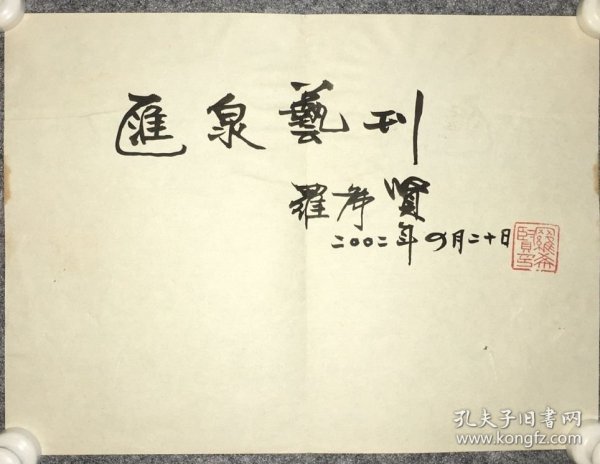 匯泉藝刊
羅希賢
二〇〇二年四月二十日
羅希賢印
孔夫子旧书网
www.kongfz.com